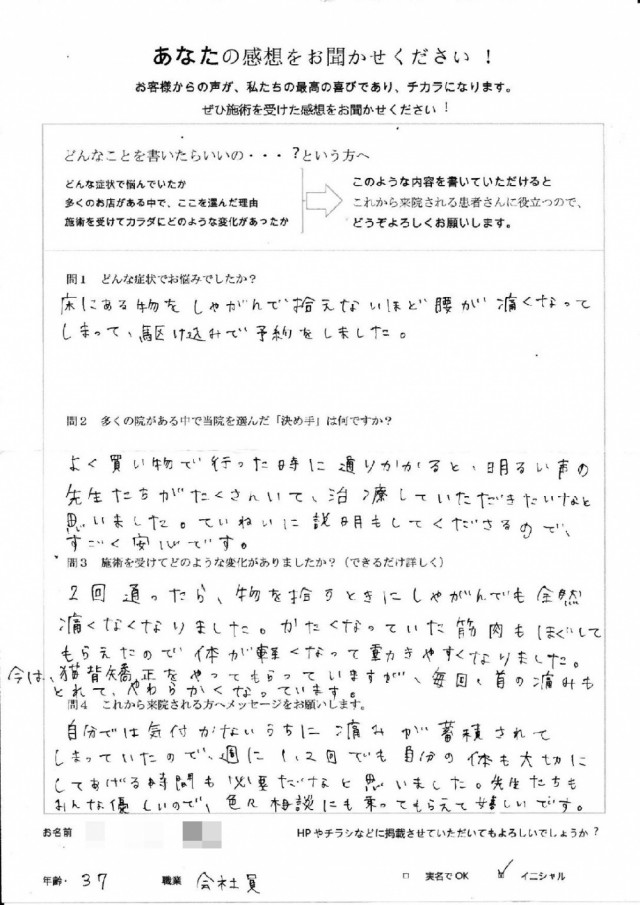 あなたの感想をお聞かせください！
お客様からの声が、私たちの最高の喜びであり、チカラになります。
ぜひ施術を受けた感想をお聞かせください！
どんなことを書いたらいいの・・・？という方へ
どんな症状で悩んでいたか
多くのお店がある中で、ここを選んだ理由
施術を受けてカラダにどのような変化があったか
このような内容を書いていただけると
これから来院される患者さんに役立つので、
どうぞよろしくお願いします。
問１ どんな症状でお悩みでしたか？
床にある物をしゃがんで拾えないほど腰が痛くなって
しまって、駆け込みで予約をしました。
問２ 多くの院がある中で当院を選んだ「決め手」は何ですか？
よく買い物で行った時に通りかかると、明るい声の
先生たちがたくさんいて、治療していただきたいなと
思いました。ていねいに説明もしてくださるので、
すごく安心です。
問３ 施術を受けてどのような変化がありましたか？（できるだけ詳しく）
2回通ったら、物を拾うときにしゃがんでも全然
痛くなくなりました。かたくなっていた筋肉もほぐして
もらえたので体が軽くなって動きやすくなりました。
今は、猫背矯正をやってもらっていますが、毎回、首の痛みも
とれて、やわらかくなっています。
問４ これから来院される方へメッセージをお願いします。
自分では気付かないうちに痛みが蓄積されて
しまっていたので、週に1、2回でも自分の体も大切に
してあげる時間も必要だなと思いました。先生たちも
みんな優しいので、色々相談にも乗ってもらえて嬉しいです。
お名前
HPやチラシなどに掲載させていただいてもよろしいでしょうか？
年齢・ 37 職業 会社員 □ 実名でOK ☑ イニシャル